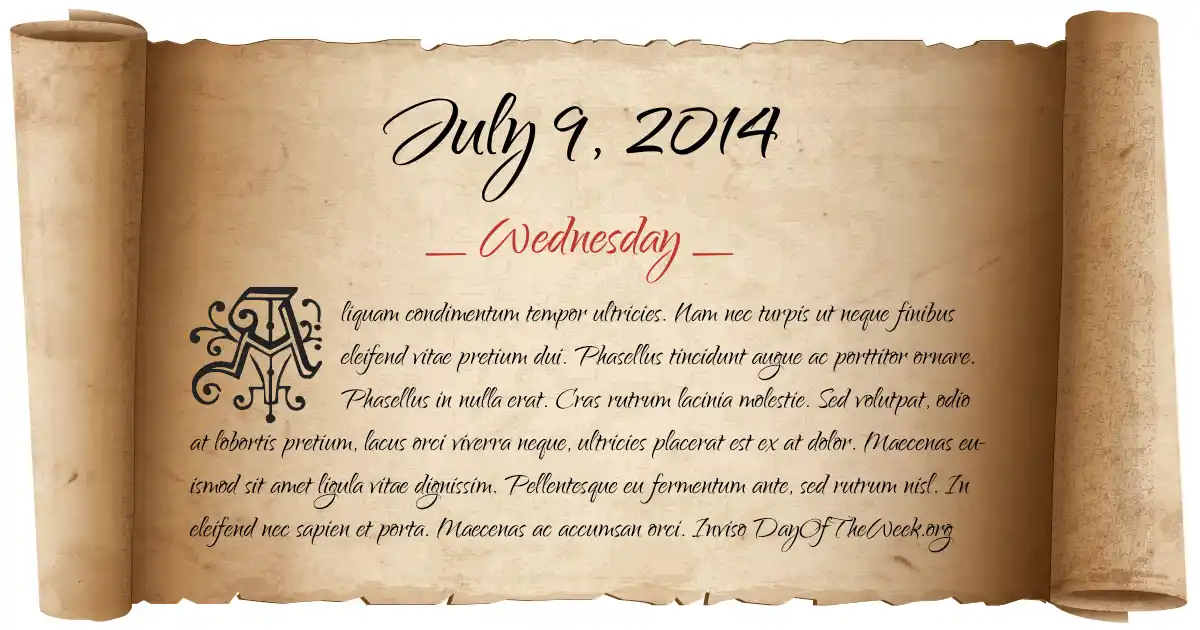 July 9, 2014
Wednesday
Aliquam condimentum tempor ultricies. Nam nec turpis ut neque finibus
eleifend vitae pretium dui. Phasellus tincidunt augue ac porttitor ornare.
Phasellus in nulla erat. Cras rutrum lacinia molestie. Sed volutpat, odio
at lobortis pretium, lacus orci viverra neque, ultricies placerat est ex at dolor. Maecenas eu-
ismod sit amet ligula vitae dignissim. Pellentesque eu fermentum ante, sed rutrum nisl. In
eleifend nec sapien et porta. Maecenas ac accumsan orci. Inviso DayOfTheWeek.org